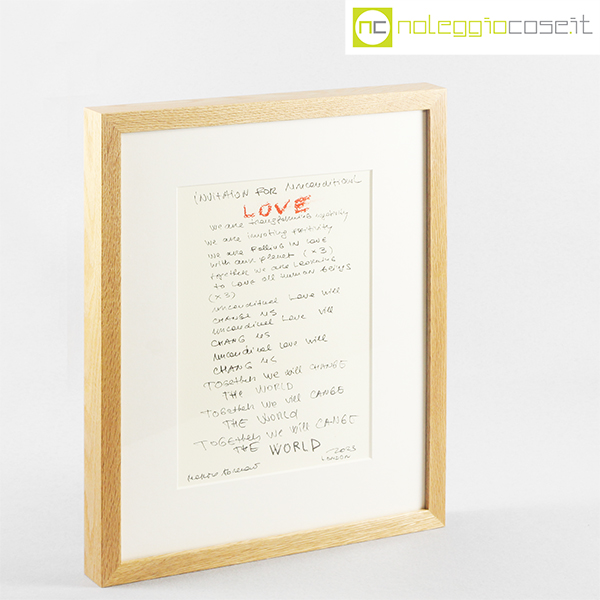 nc noleggiocose.it
INVITATION FOR UNCONDITIONL
LOVE
we are transforming
we are inviting positivity
we are falling in love
with our planet (x3)
together we are learning
to love all human beings
(x3)
unconditional Love will
CHANGE US
unconditional Love will
CHANG US
unconditional love will
CHANG US
TOGETHER WE will CHANGE
THE WORLD
TOGETHER We will CANGE
THE WORLD
TOGETHER We will CANGE
THE WORLD
2023
LONDON